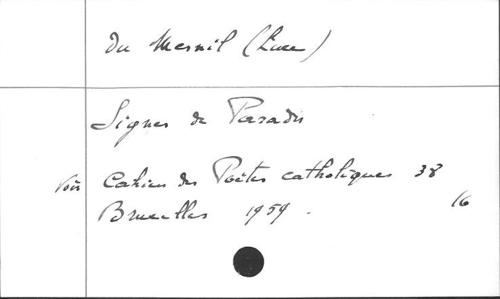 Du Mesnil (Luce)
Signes de Paradis
Voir Cahiers des Poètes catholiques 38
Bruxelles 1959. 16